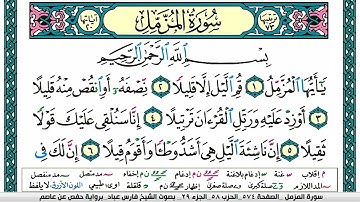 سُورَةُ المُزَّمِّلِ
بِسْمِ اللَّهِ الرَّحْمَٰنِ الرَّحِيمِ
يَٰٓأَيُّهَا الْمُزَّمِّلُ ١ قُمِ الَّيْلَ إِلَّا قَلِيلًا ٢ نِّصْفَهُۥٓ أَوِ انقُصْ مِنْهُ قَلِيلًا
٣ أَوْ زِدْ عَلَيْهِ وَرَتِّلِ الْقُرْءَانَ تَرْتِيلًا ٤ إِنَّا سَنُلْقِى عَلَيْكَ قَوْلًا
ثَقِيلًا ٥ إِنَّ نَاشِئَةَ الَّيْلِ هِىَ أَشَدُّ وَطْـًٔا وَأَقْوَمُ قِيلًا ٦ إِنَّ لَكَ فِى
سورة المزمل الصفحة ٥٧٤ الحزب ٥٨ الجزء ٢٩ بصوت الشيخ فارس عباد برواية حفص عن عاصم